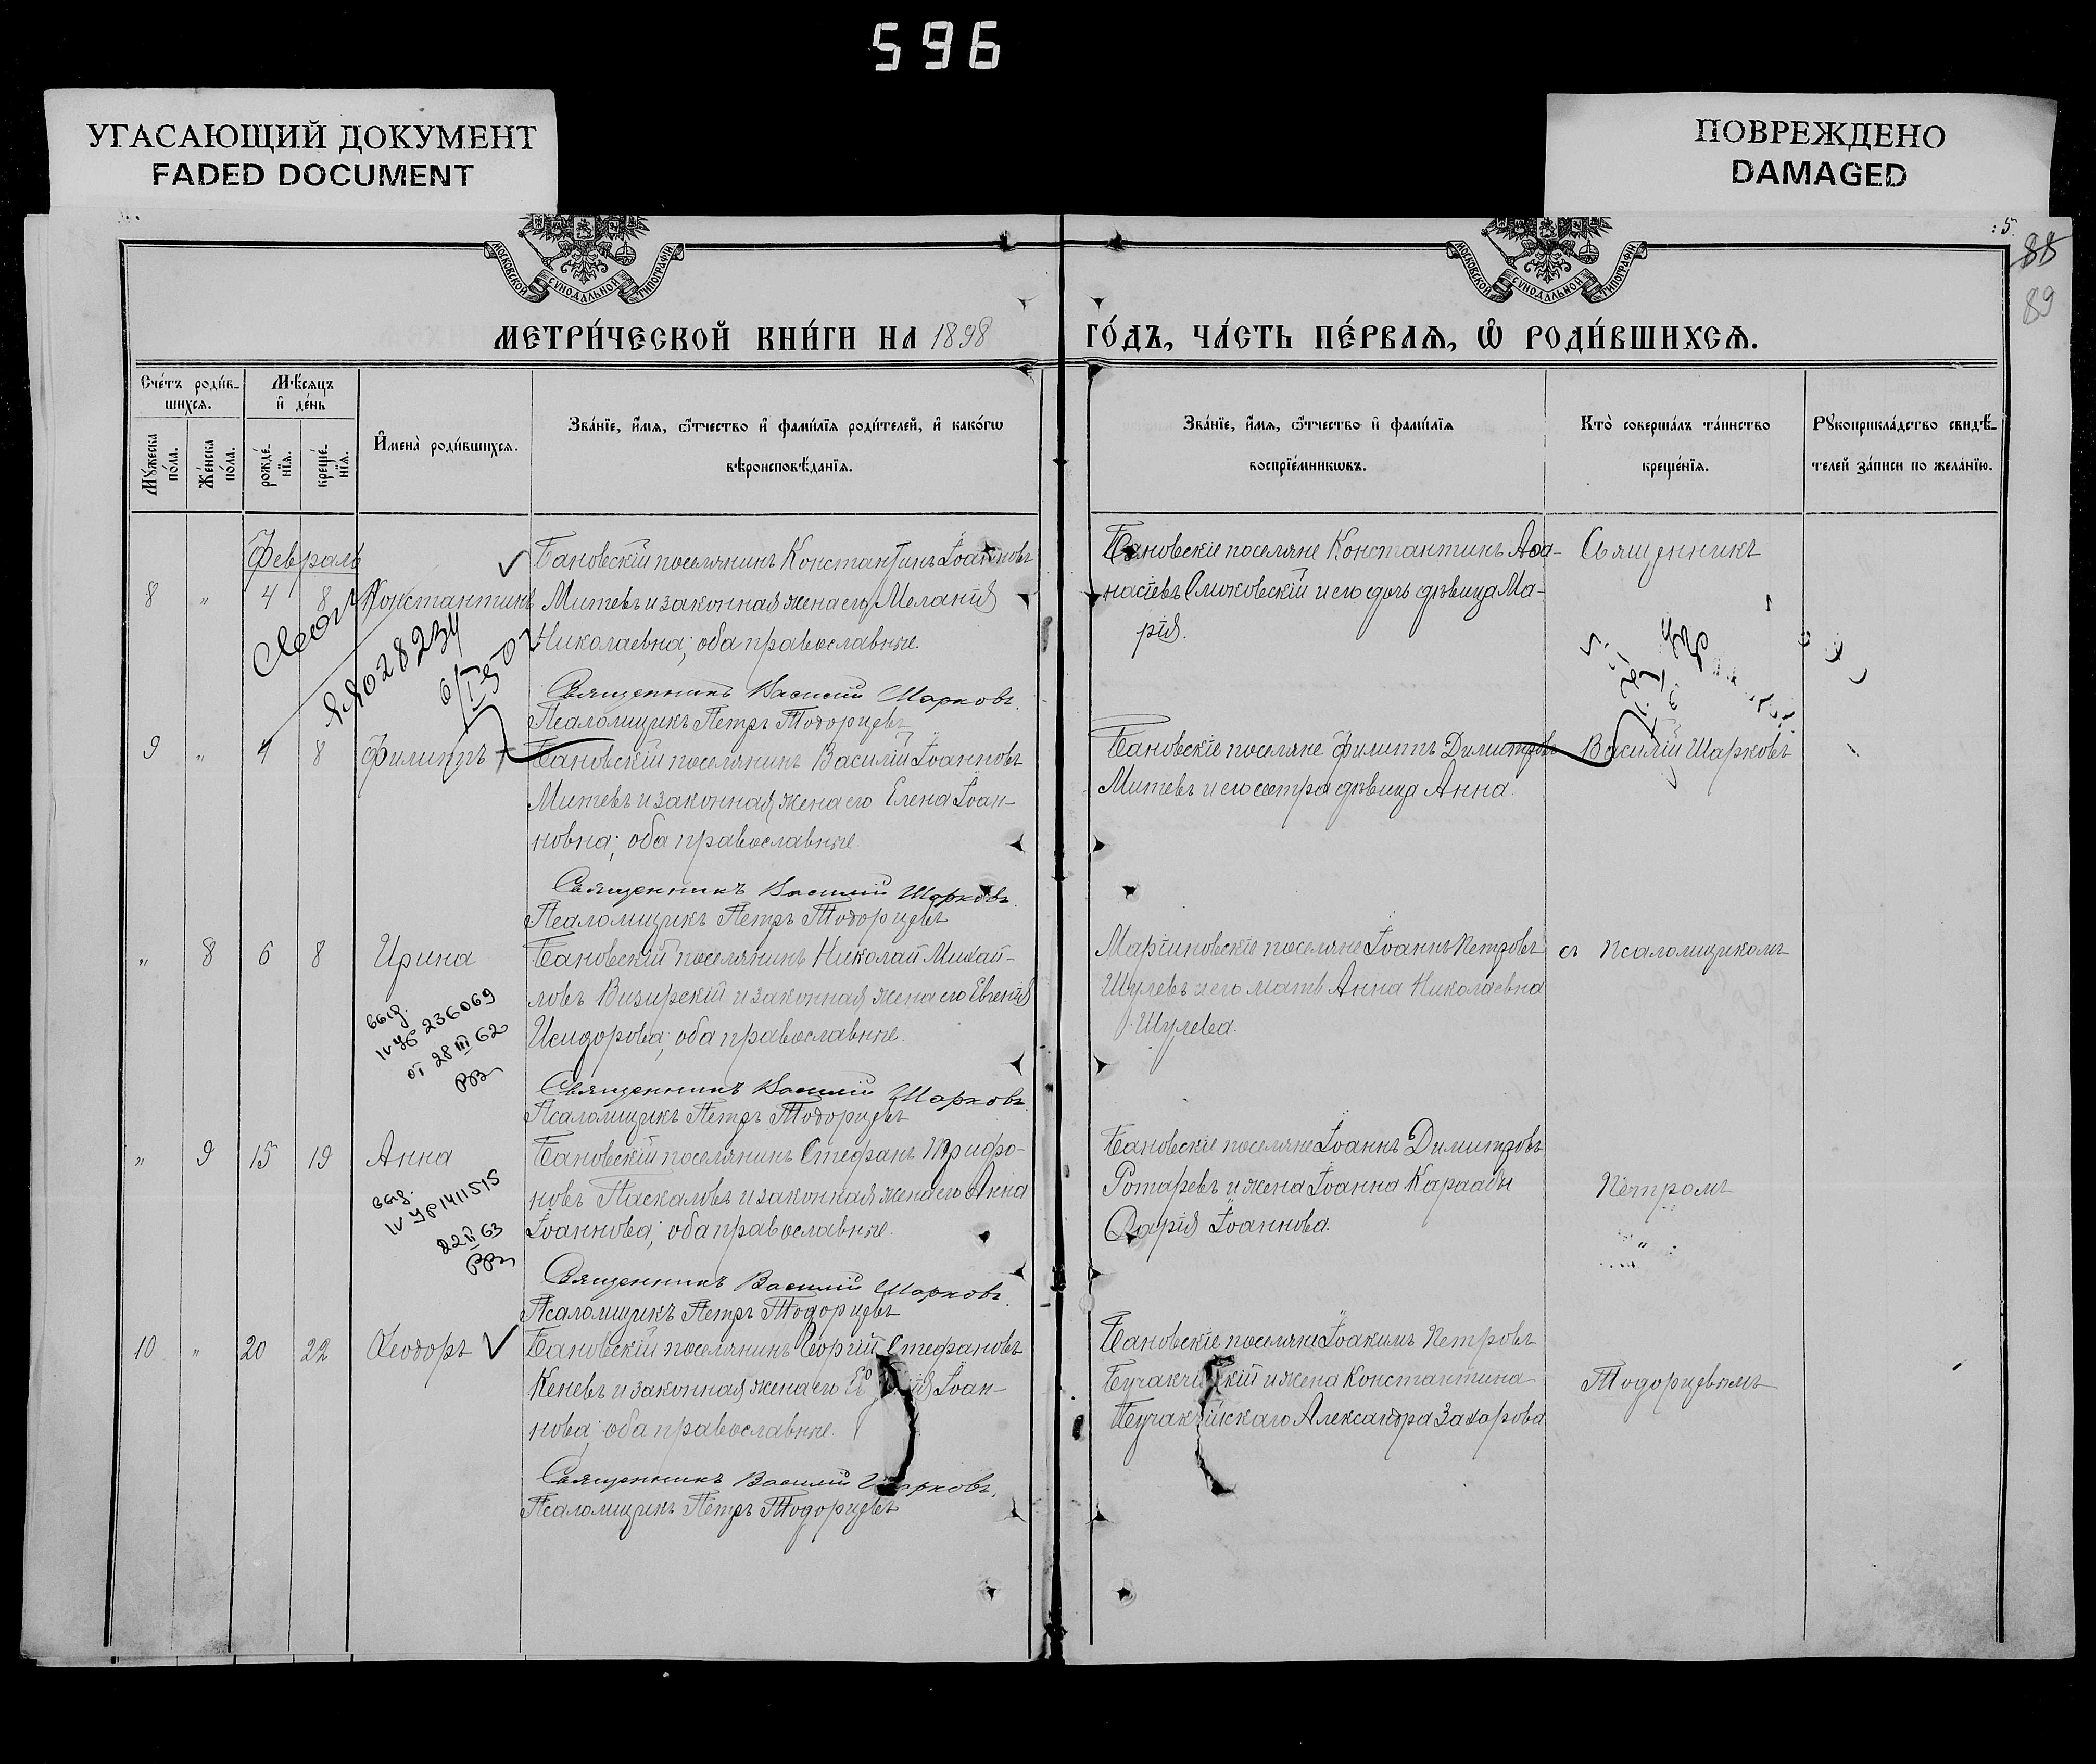 596
УГАСАЮЩИЙ ДОКУМЕНТ
FADED DOCUMENT
ПОВРЕЖДЕНО
DAMAGED
МОСКОВСКОЙ СУНОДАЛЬНОЙ ТИПОГРАФІИ
МОСКОВСКОЙ СУНОДАЛЬНОЙ ТИПОГРАФІИ
5.
88
89
МЕТРИ́ЧЕСКОЙ КНИ́ГИ НА 1898 ГО́ДЪ, ЧА́СТЬ ПЕ́РВАѦ, Ѽ РОДИ́ВШИХСѦ.
Сче́тъ роди́в-
шихсѧ.
Мѣ́сѧцъ
и҆ де́нь
Мꙋ́жеска по́ла.
Же́нска по́ла.
рожде́-
нїѧ.
креще́-
нїѧ.
И҆мена̀ роди́вшихсѧ.
Зва́нїе, и҆́мѧ, ѻ҆́тчество и҆ фами́лїѧ роди́телей, и҆ како́гѡ
вѣроисповѣ́данїѧ.
Зва́нїе, и҆́мѧ, ѻ҆́тчество и҆ фами́лїѧ
воспрїе́мникѡвъ.
Кто̀ соверша́лъ та́инство
креще́нїѧ.
Рꙋкоприкла́дство свидѣ́-
телей за́писи по жела́нїю.
Февраль
8 " 4 8 Константинъ
Бановскій поселянинъ Константинъ Іоанновъ
Митевъ и законная жена его Меланія
Николаевна; оба православные.
Священникъ Василій Шарковъ.
Псаломщикъ Петръ Тодорцевъ
Бановскіе поселяне Константинъ Аѳа-
насіевъ и его дочь дѣвица Ма-
рія.
Священникъ
ЯЯ028234
9 " 4 8 Филиппъ
Бановскій поселянинъ Василій Іоанновъ
Митевъ и законная жена его Елена Іоан-
новна; оба православные.
Священникъ Василій Шарковъ.
Псаломщикъ Петръ Тодорцевъ
Бановскіе поселяне Филиппъ Димитровъ
Митевъ и его сестра дѣвица Анна.
Василій Шарковъ
" 8 6 8 Ирина
выд.
IV УБ 236069
от 28 III 62
Бановскій поселянинъ Николай Михай-
ловъ Визирскій и законная жена его Евгенія
Исидорова; оба православные.
Священникъ Василій Шарковъ
Псаломщикъ Петръ Тодорцевъ
поселяне Іоаннъ Петровъ
Шулевъ и его мать Анна Николаевна
Шулева.
съ псаломщикомъ
" 9 15 19 Анна
выд.
IV УР 1411515
22 II 63
Бановскій поселянинъ Стефанъ Трифо-
новъ Паскаловъ и законная жена его Анна
Іоаннова; оба православные.
Священникъ Василій Шарковъ.
Псаломщикъ Петръ Тодорцевъ
Бановскіе поселяне Іоаннъ Димитровъ
Ротаревъ и жена Іоанна
Іоаннова.
Петромъ
10 " 20 22 Ѳеодоръ
Бановскій поселянинъ Георгій Стефановъ
Кеневъ и законная жена его Іоан-
нова; оба православные.
Священникъ Василій Шарковъ.
Псаломщикъ Петръ Тодорцевъ
Бановскіе поселяне Іоакимъ Петровъ
и жена Константина
Александра Захарова.
Тодорцевымъ